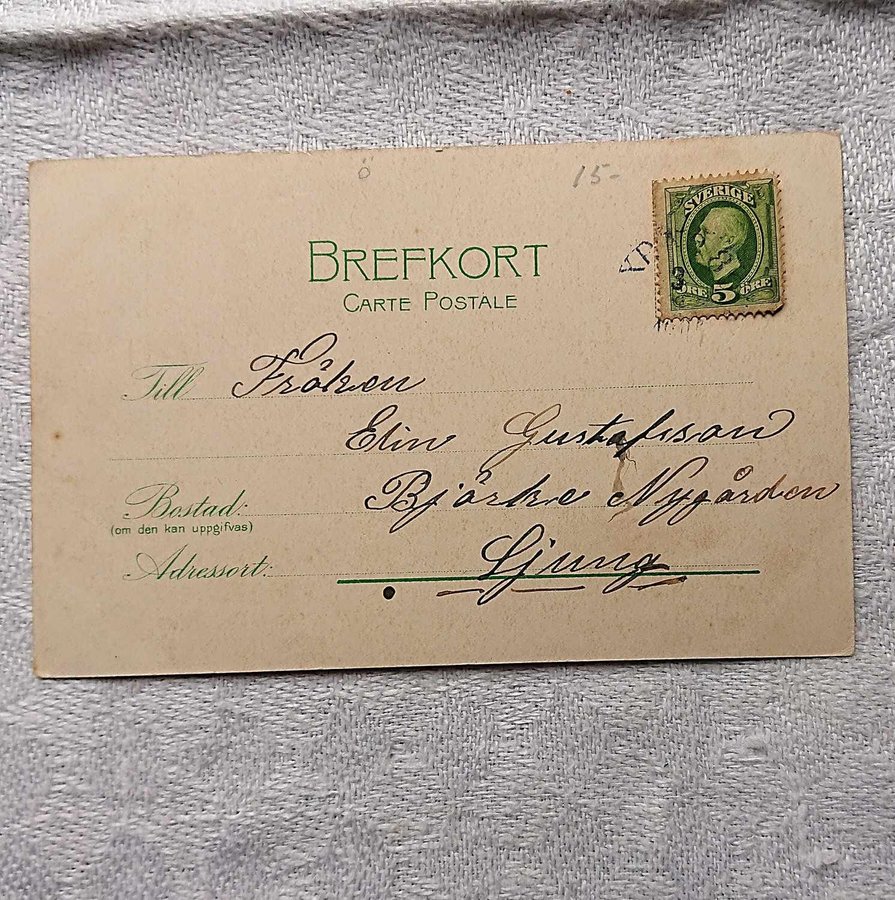 Ö
15-
SVERIGE
ÖRE 5 ÖRE
BREFKORT
CARTE POSTALE
Till Fröken
Elin Gustafsson
Bostad: Björke Nygården
(om den kan uppgifvas)
Adressort: Ljung